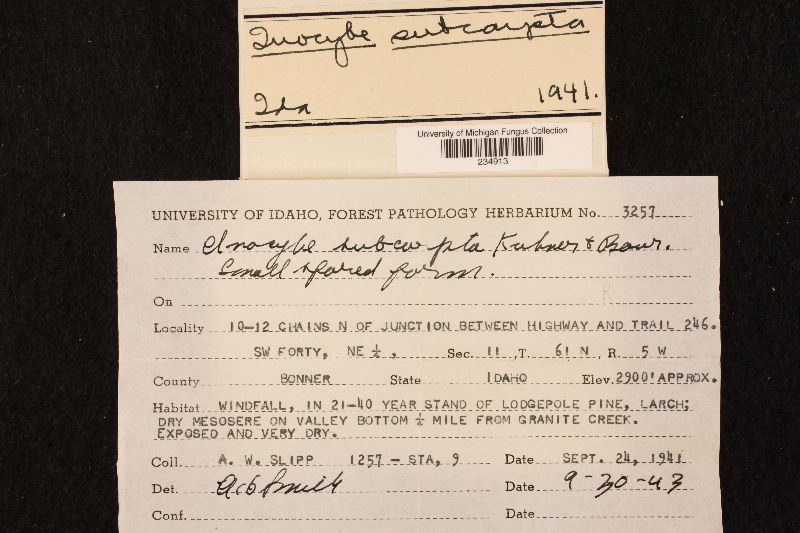 Inocybe subcarpta
Ida 1941.
University of Michigan Fungus Collection
234913
UNIVERSITY OF IDAHO, FOREST PATHOLOGY HERBARIUM No. 3257
Name Inocybe subcarpta Kuhner & Bour.
Small spored form.
On
Locality 10-12 CHAINS N OF JUNCTION BETWEEN HIGHWAY AND TRAIL 246.
SW FORTY, NE ¼, Sec. 11, T. 61 N, R. 5 W
County BONNER State IDAHO Elev. 2900' APPROX.
Habitat WINDFALL, IN 21-40 YEAR STAND OF LODGEPOLE PINE, LARCH;
DRY MESOSERE ON VALLEY BOTTOM ¼ MILE FROM GRANITE CREEK.
EXPOSED AND VERY DRY.
Coll. A. W. SLIPP 1257 - STA, 9 Date SEPT. 24, 1941
Det. AHSmith Date 9-30-43
Conf. Date